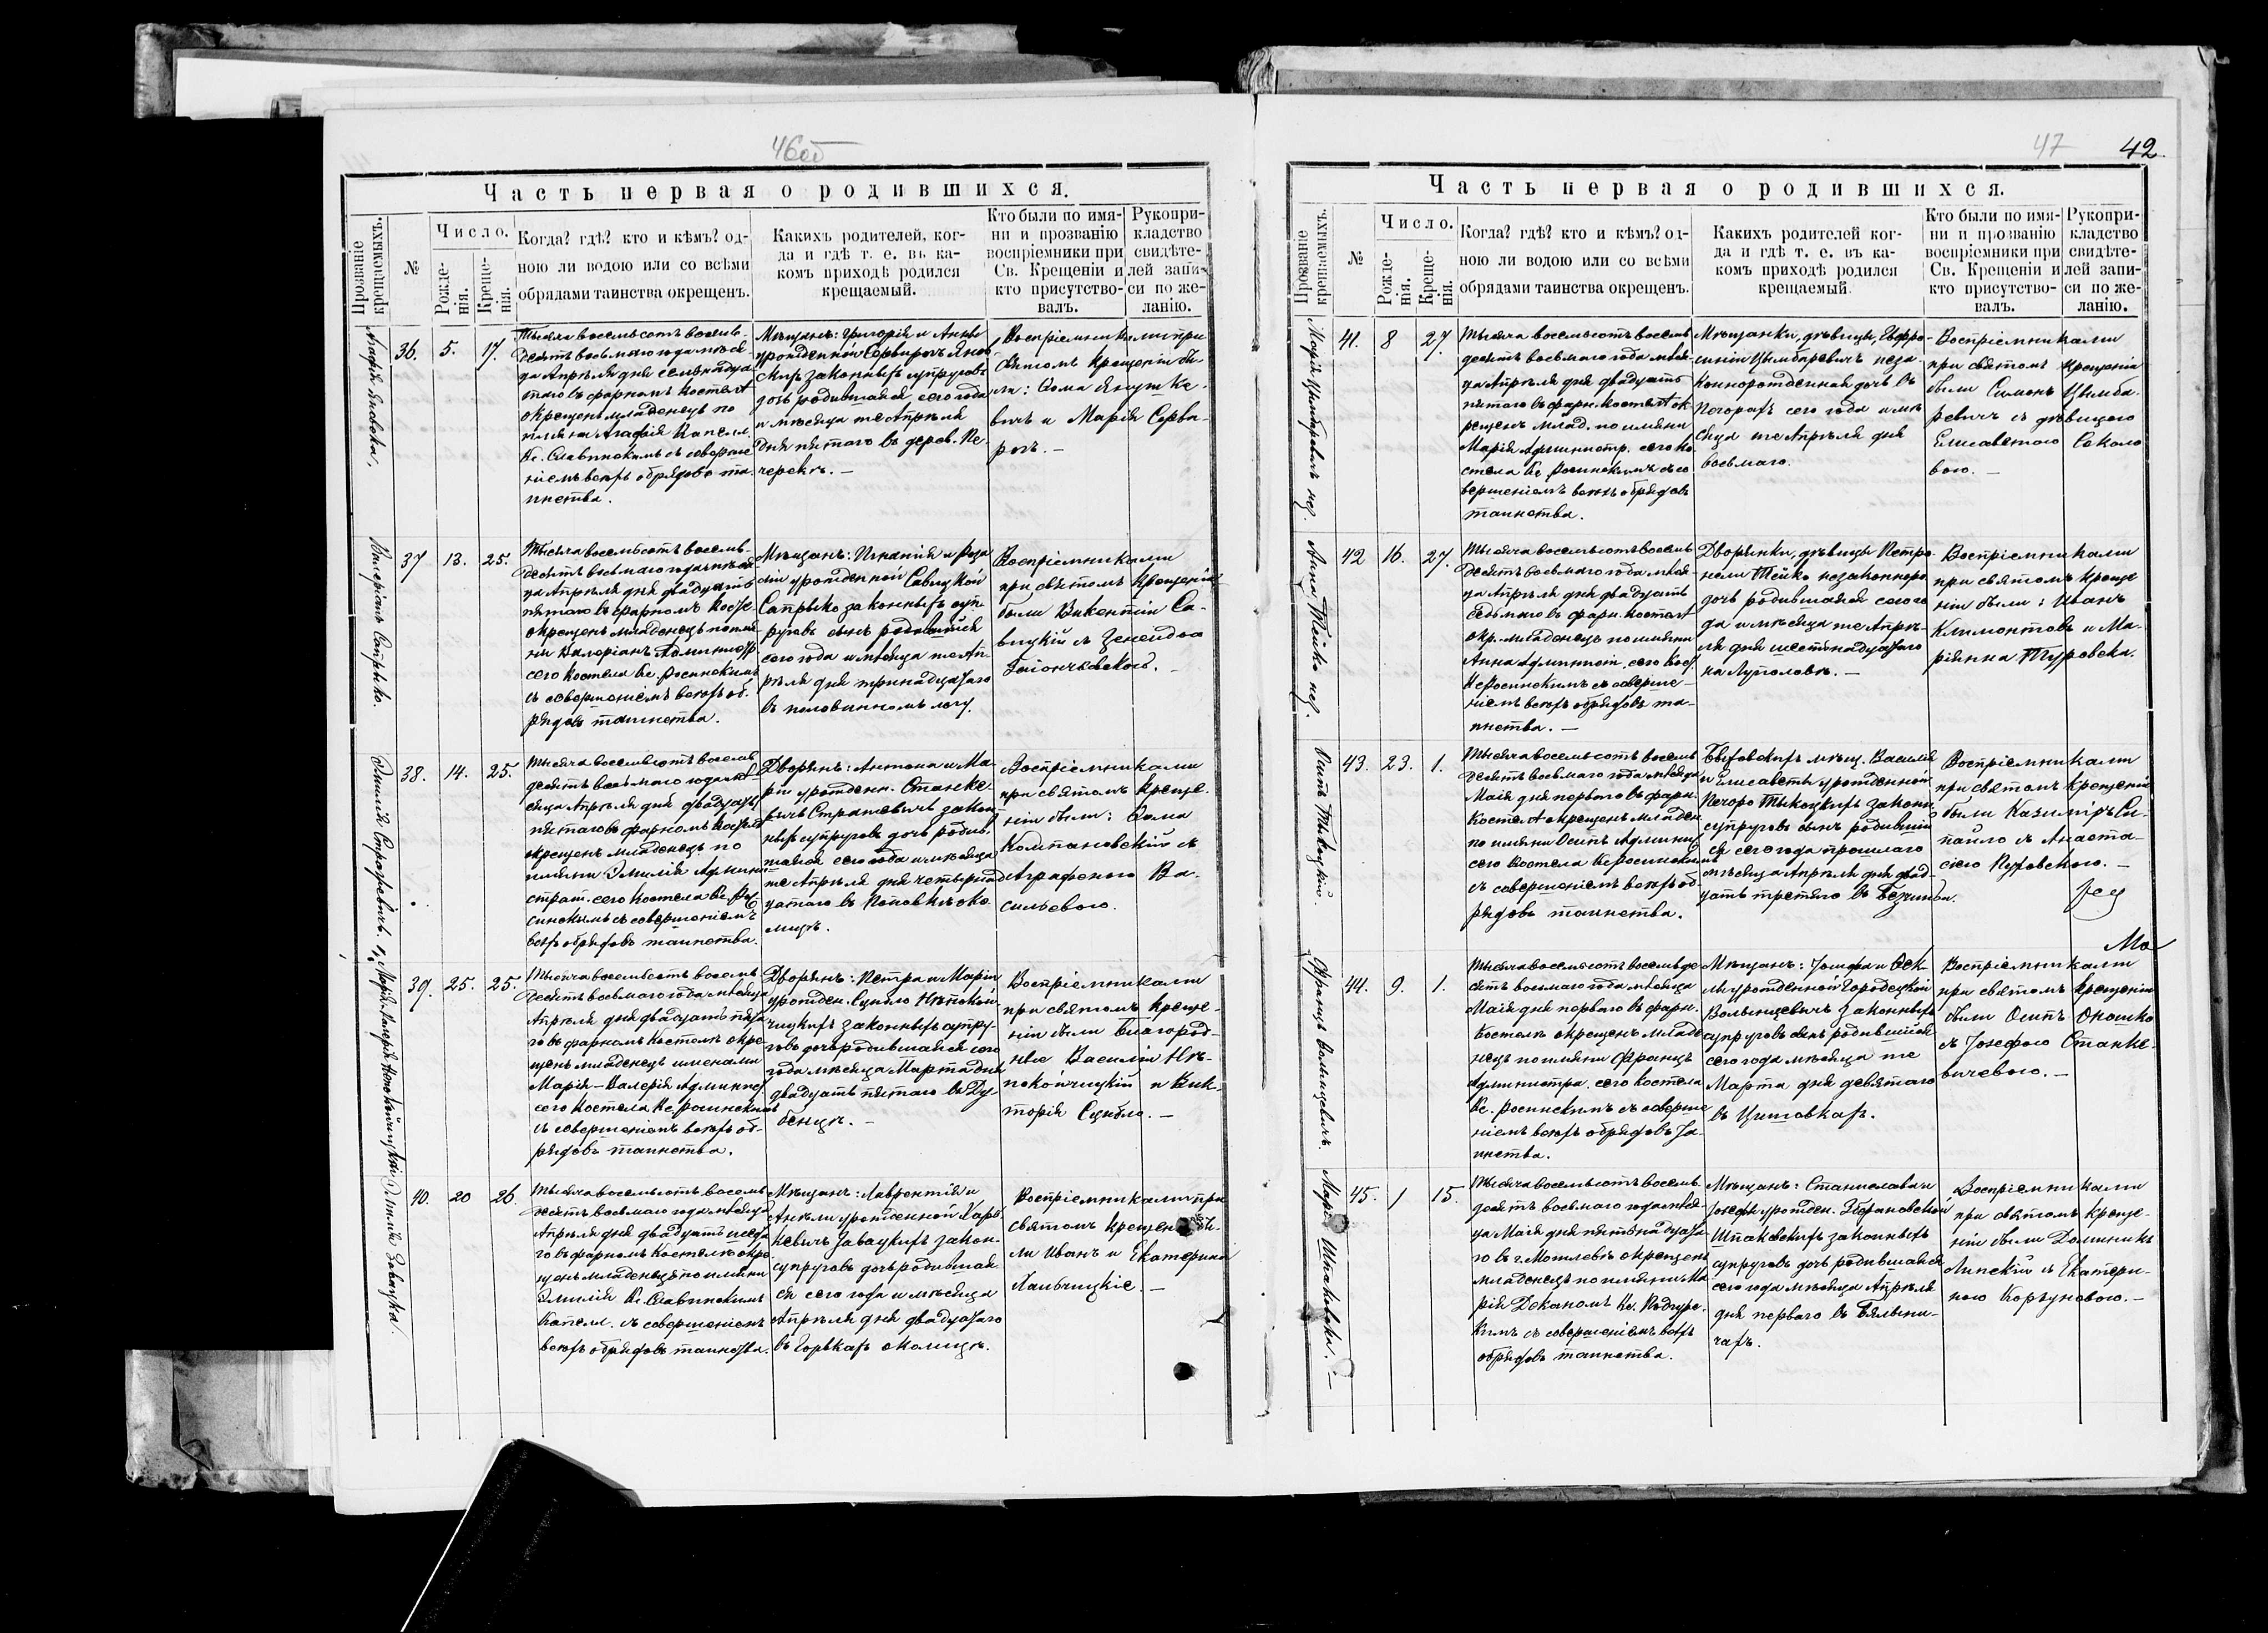 46об
Часть первая о родившихся.
Прозваніе крещаемыхъ.
№
Число.
Рожде-
нія.
Креще-
нія.
Когда? гдѣ? кто и кѣмъ? од-
ною ли водою или со всѣми
обрядами таинства окрещенъ.
Какихъ родителей, ког-
да и гдѣ т. е. въ ка-
комъ приходѣ родился
крещаемый.
Кто были по имя-
ни и прозванію
воспріемники при
Св. Крещеніи и
кто присутство-
валъ.
Рукопри-
кладство
свидѣте-
лей запи-
си по же-
ланію.
Агафія
36. 5. 17.
Тысяча восемьсотъ восемь-
десятъ восьмого года мѣся
ца Апрѣля дня семнадца
таго въ фарномъ костелѣ
окрещенъ младенецъ по
имени Агафія Капелл.
Кс. Славинскимъ съ соверше
ніемъ всѣхъ обрядовъ та-
инства.
Мѣщанъ: Григорія и Анны
урожденной
законныхъ супруговъ
дочь родившаяся сего года
и мѣсяца те Апрѣля
дня пятаго въ дерев. Пе-
черскѣ. —
Воспріемниками при
Святомъ Крещеніи бы-
ли: Ѳома Янушке-
вичъ и Марія Серва-
рогъ. —
Валеріанъ Сапрыко.
37 13. 25.
Тысяча восемьсотъ восемь-
десятъ восьмаго года мѣся
ца Апрѣля дня двадцать
пятаго въ фарномъ косте.
окрещенъ младенецъ по име
ни Валеріанъ Администр.
сего костела Кс. Росинскимъ
съ совершеніемъ всѣхъ об-
рядовъ таинства.
Мѣщанъ: Игнатія и Роза
ліи урожденной Савицкой
Сапрыко законныхъ суп-
руговъ сынъ родившійся
сего года и мѣсяца те Ап-
рѣля дня тринадцатаго
въ половинномъ логу.
Воспріемниками
при святомъ Крещеніи
были Викентій Са-
вицкій съ
38. 14. 25.
Тысяча восемьсотъ восемь
десятъ восьмаго года мѣ
сяца Апрѣля дня двадцать
пятаго въ фарномъ костелѣ
окрещенъ младенецъ по
имени Эмилія Админи-
страт. сего костела Кс. Ро
синскимъ съ совершеніемъ
всѣхъ обрядовъ таинства.
Дворянъ: Антона и Ма-
ріи урожденн. Станке-
вичъ закон-
ныхъ супруговъ дочь родив-
шаяся сего года и мѣсяца
те Апрѣля дня четырнад
цатаго въ Поповкѣ око-
лицѣ.
Воспріемниками
при святомъ Креще-
ніи были: Ѳома
Компановскій съ
Аграфеною Ва-
сильевою.
39. 25. 25.
Тысяча восемьсотъ восемь
десятъ восьмаго года мѣсяца
Апрѣля дня двадцать пята
го въ фарномъ костелѣ окре-
щенъ младенецъ именами
Марія-Валерія Админист
сего костела Кс. Росинскимъ
съ совершеніемъ всѣхъ об-
рядовъ таинства.
Дворянъ: Петра и Маріи
урожден.
законныхъ супру-
говъ дочь родившаяся сего
года мѣсяца Марта дня
двадцать пятаго въ Ду-
бенцѣ. —
Воспріемниками
при святомъ Креще-
ніи были благород-
ные Василій Не-
покойчицкій и Вик-
торія —
Эмилія Завацка.
40. 20 26
Тысяча восемьсотъ восемь
десятъ восьмаго года мѣсяца
Апрѣля дня двадцать шеста
го въ фарномъ костелѣ окре
щенъ младенецъ по имени
Эмилія Кс. Славинскимъ
Капелл. съ совершеніемъ
всѣхъ обрядовъ таинства.
Мѣщанъ: Лаврентія и
Анели урожденной Харе-
кевичъ Завацкихъ закон.
супруговъ дочь родившая
ся сего года и мѣсяца
Апрѣля дня двадцатаго
въ Горькахъ околицѣ.
Воспріемниками при
святомъ крещеніи бы-
ли Иванъ и Екатерина
47 42.
Часть первая о родившихся.
Прозваніе крещаемыхъ.
№
Число.
Рожде-
нія.
Креще-
нія.
Когда? гдѣ? кто и кѣмъ? од-
ною ли водою или со всѣми
обрядами таинства окрещенъ.
Какихъ родителей ког-
да и гдѣ т. е. въ ка-
комъ приходѣ родился
крещаемый
Кто были по имя-
ни и прозванію
воспріемники при
Св. Крещеніи и
кто присутство-
валъ.
Рукопри-
кладство
свидѣте-
лей запи-
си по же-
ланію.
Марія Цымбаревичъ нез.
41. 8 27.
Тысяча восемьсотъ восемь
десятъ восьмаго года мѣся-
ца Апрѣля дня двадцать
пятаго въ фарн. костелѣ ок
рещенъ млад. по имени
Марія Администр. сего ко
стела Кс. Росинскимъ съ со
вершеніемъ всѣхъ обрядовъ
таинства.
Мѣщанки, дѣвицы, Евфро-
синіи Цымбаревичъ неза-
коннорожденная дочь въ
сего года и мѣ
сяца те Апрѣля дня
восьмаго.
Воспріемниками
при святомъ крещеніи
были Симонъ Цымба-
ревичъ съ дѣвицею
Елисаветою Соколо
вою. —
Анна Тейко нез.
42 16. 27.
Тысяча восемьсотъ восемь
десятъ восьмаго года мѣся-
ца Апрѣля дня двадцать
седьмаго въ фарн. костелѣ
окр. младенецъ по имени
Анна Админист. сего кост
Кс Росинскимъ съ соверше-
ніемъ всѣхъ обрядовъ та-
инства. —
Дворянки, дѣвицы Петро-
нели Тейко незаконноро
дочь родившаяся сего го
да и мѣсяца те Апрѣ-
ля дня шестнадцатаго
на Луполовѣ. —
Воспріемниками
при святомъ креще
ніи были: Иванъ
Климонтовъ и Ма-
ріянна Туровска.
Осипъ Тыкоцкій.
43. 23. 1.
Тысяча восемьсотъ восемь
десятъ восьмаго года мѣсяца
Маія дня перваго въ фарн.
костелѣ окрещенъ младен
по имени Осипъ Админис
сего костела Кс Росинскимъ
съ совершеніемъ всѣхъ об-
рядовъ таинства.
Быховскихъ мѣщ. Василія
и Елисаветы урожденной
Печоро Тыкоцкихъ законн
супруговъ сынъ родивший
ся сего года прошлаго
мѣсяца Апрѣля дня двад-
цать третьяго въ
Воспріемниками
при святомъ крещеніи
были Казиміръ Си-
пайло съ Анаста-
сіею —
Францъ Волынцевичъ.
44. 9. 1.
Тысяча восемьсотъ восемьде
сятъ восьмаго года мѣсяца
Маія дня перваго въ фарн.
костелѣ окрещенъ младе
нецъ по имени Францъ
Администра. сего костела
Кс. Росинскимъ съ соверше
ніемъ всѣхъ обрядовъ та-
инства.
Мѣщанъ: Іосифа и Ѳек-
ли урожденной Городецкой
Волынцевичъ законныхъ
супруговъ сынъ родившійся
сего года мѣсяца те
Марта дня девятаго
въ
Воспріемниками
при святомъ крещеніи
были Осипъ Окошко
съ Іозефою Станке-
вичевою. —
Марія Шпаковска. —
45. 1 15.
Тысяча восемьсотъ восемь
десятъ восьмаго года мѣся-
ца Маія дня пятнадцата-
го въ г. Могилевѣ окрещенъ
младенецъ по имени Ма
рія Деканомъ Кс.
съ совершеніемъ всѣхъ
обрядовъ таинства.
Мѣщанъ: Станислава и
Іозефы урожден.
Шпаковскихъ законныхъ
супруговъ дочь родившаяся
сего года мѣсяца Апрѣля
дня перваго въ Бялыни-
чахъ.
Воспріемниками
при святомъ креще-
ніи были Доминикъ
Липскій съ Екатери-
ною Коръуновою. —